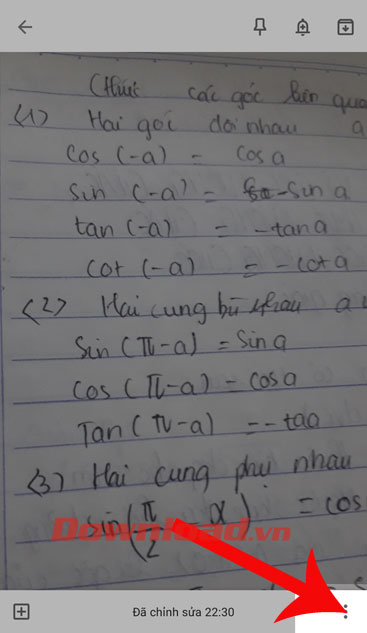 thức các góc liên qua
(1) Hai góc đối nhau a
cos (-a) = cos a
sin (-a) = -sin a
tan (-a) = -tan a
cot (-a) = -cot a
(2) Hai cung bù nhau a
Sin (π-a) = Sin a
cos (π-a) = cosa
Tan (π-a) = -taa
(3) Hai cung phụ nhau
sin(π/2 - α) = cos
Download.vn
Đã chỉnh sửa 22:30